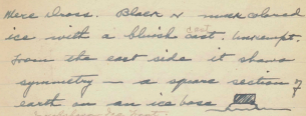 Here cross. Black or mud colored
ice with a bluish cast. Unkempt.
From the east side it shows
symmetry — a square section of
earth on an ice base